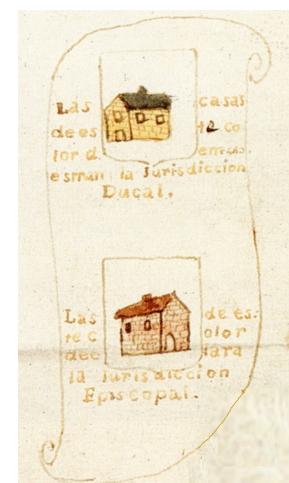 Las casas
de es te co
lor d.
la Jurisdiccion
Ducal.
Las de es:
te c olor
la Jurisdiccion
Episcopal.